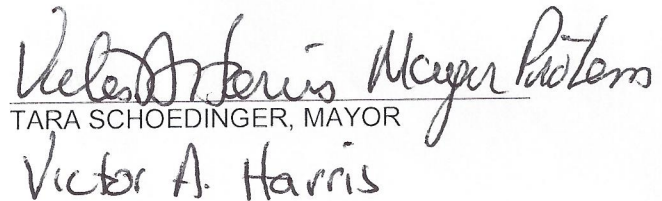 Victor A Harris Mayor ProTem
TARA SCHOEDINGER, MAYOR
Victor A. Harris